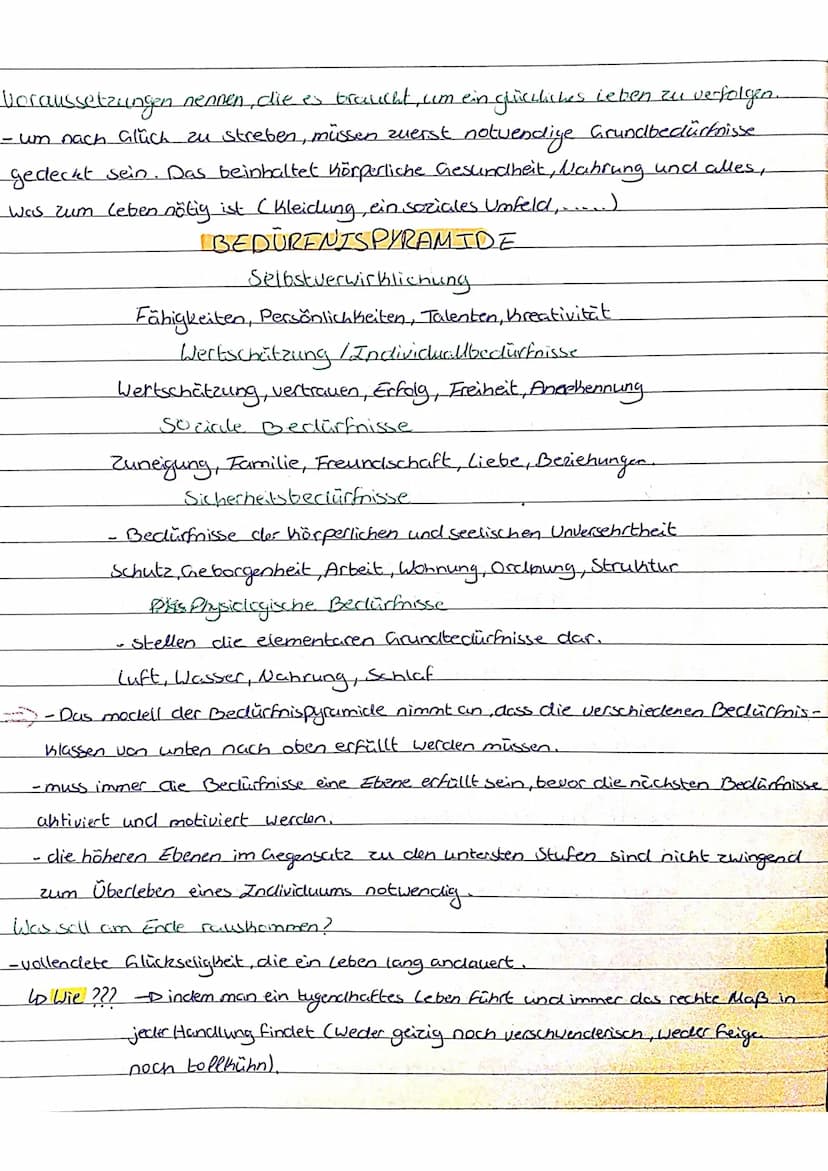 Voraussetzungen nennen, die es braucht, um ein glückliches Leben zu verfolgen.
- um nach Glück zu streben, müssen zuerst notwendige Grundbedürfnisse
gedeckt sein. Das beinhaltet körperliche Gesundheit, Nahrung und alles,
was zum Leben nötig ist (Kleidung, ein soziales Umfeld, .....)
BEDÜRFNISPYRAMIDE
Selbstverwirklichung
Fähigkeiten, Persönlichkeiten, Talenten, Kreativität
Wertschätzung / Individuallbedürfnisse
Wertschätzung, vertrauen, Erfolg, Freiheit, Anerkennung
Soziale Bedürfnisse
Zuneigung, Familie, Freundschaft, Liebe, Beziehungen.
Sicherheitsbedürfnisse
- Bedürfnisse der körperlichen und seelischen Unversehrtheit
Schutz, Geborgenheit, Arbeit, Wohnung, Ordnung, Struktur
Physiologische Bedürfnisse
- stellen die elementaren Grundbedürfnisse dar.
Luft, Wasser, Nahrung, Schlaf
=> - Das modell der Bedürfnispyramide nimmt an, dass die verschiedenen Bedürfnis-
klassen von unten nach oben erfüllt werden müssen.
- muss immer die Bedürfnisse eine Ebene erfüllt sein, bevor die nächsten Bedürfnisse
aktiviert und motiviert werden.
- die höheren Ebenen im Gegensatz zu den untersten Stufen sind nicht zwingend
zum Überleben eines Individuums notwendig.
Was soll am Ende rauskommen?
- vollendete Glückseligkeit, die ein Leben lang andauert.
↳ Wie ??? → indem man ein tugendhaftes Leben führt und immer das rechte Maß in
jeder Handlung findet (Weder geizig noch verschwenderisch, weder feige
noch tollkühn).